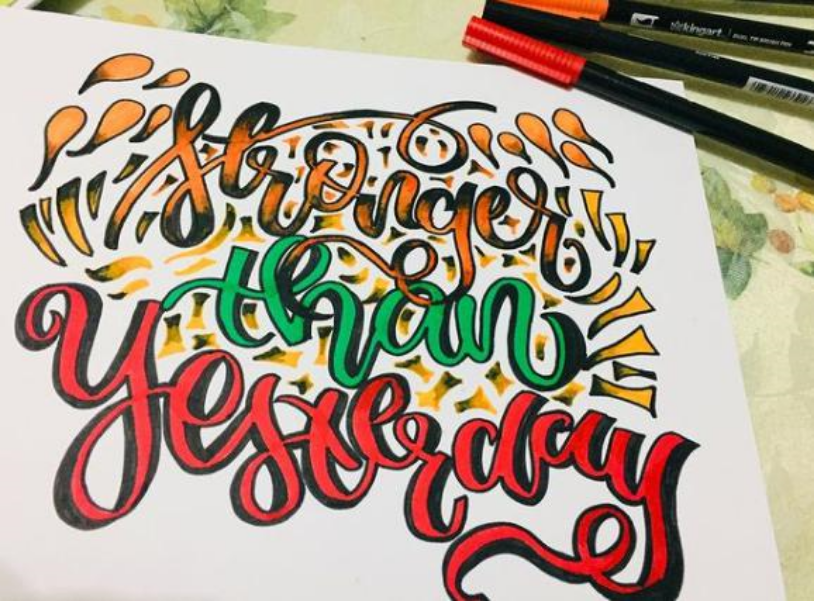 Stronger
than
Yesterday
kingart. DUAL TIP BRUSH PEN